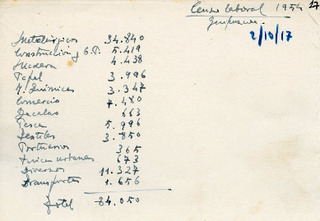 Censo laboral 1954
Guipuzcoa.
2/10/17
Metalúrgicos 34.840
Construccion y O.P. 5.419
Madera 4.438
Papel 3.996
I. Químicas 3.347
Comercio 7.480
663
Pesca 5.996
Textiles 3.850
Portuarios 365
urbanos 673
Diversos 11.327
Transportes 1.656
Total 84.050